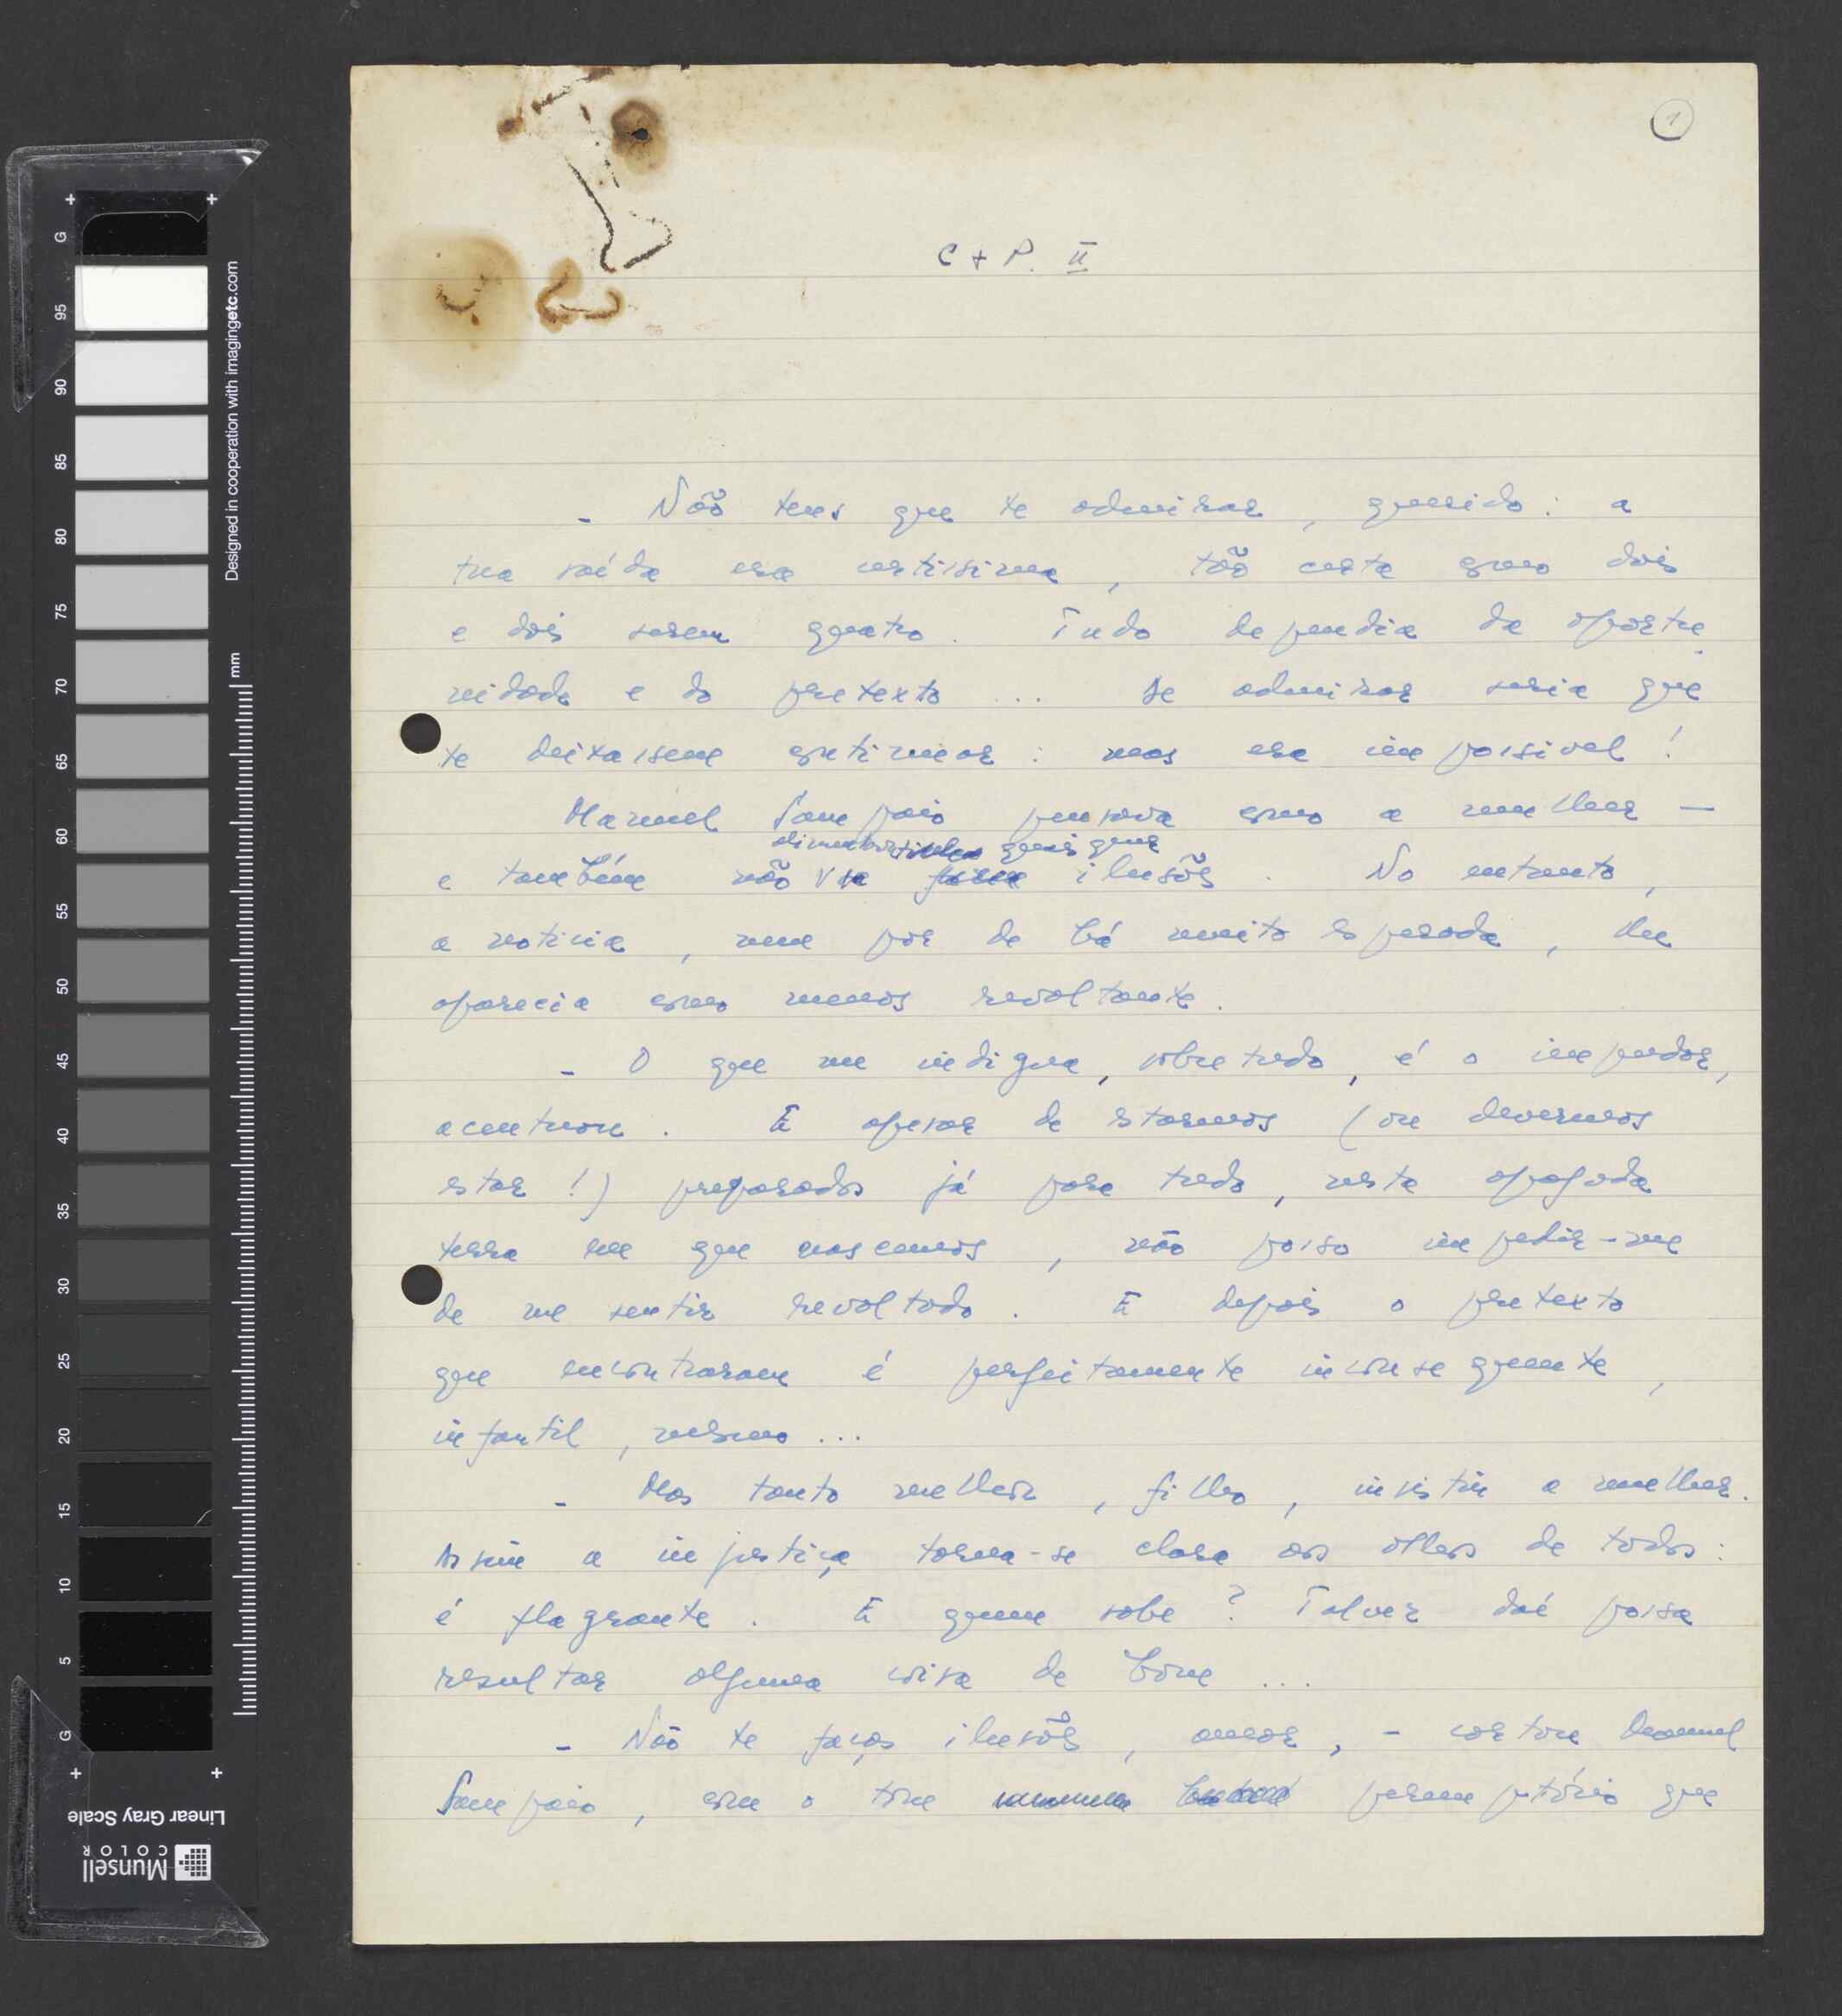 1
C + P. II
- Não tens que te admirar, querido: a
tua saída era certissima, tão certa como dois
e dois serem quatro. Tudo dependia da oportu-
nidade e do pretexto ... Se admirar seria que
te deixassem continuar: mas era impossivel!
Manuel Sampaio pensava como a mulher —
alimentar quaisquer
e também não ilusões. No entanto,
a noticia, nem por de há muito esperada, lhe
aparecia como menos revoltante.
- O que me indigna, sobretudo, é o impudor,
acentuou. E apesar de estarmos (ou devermos
estar!) preparados já para tudo, nesta apagada
terra em que nascemos, não posso impedir-me
de me sentir revoltado. E depois o pretexto
que encontraram é perfeitamente inconsequente,
infantil, mesmo...
- Mas tanto melhor, filho, insistiu a mulher.
Assim a injustiça torna-se clara aos olhos de todos:
é flagrante. E quem sabe? Talvez daí possa
resultar alguma coisa de bom ...
- Não te faças ilusões, amor, - cortou Manuel
Sampaio, com o tom peremptório que
Designed in cooperation with imagingetc.com
mm
G 95 90 85 80 75 70 65 60 55 50 45 40 35 30 25 20 15 10 5 G
Linear Gray Scale
Munsell
COLOR